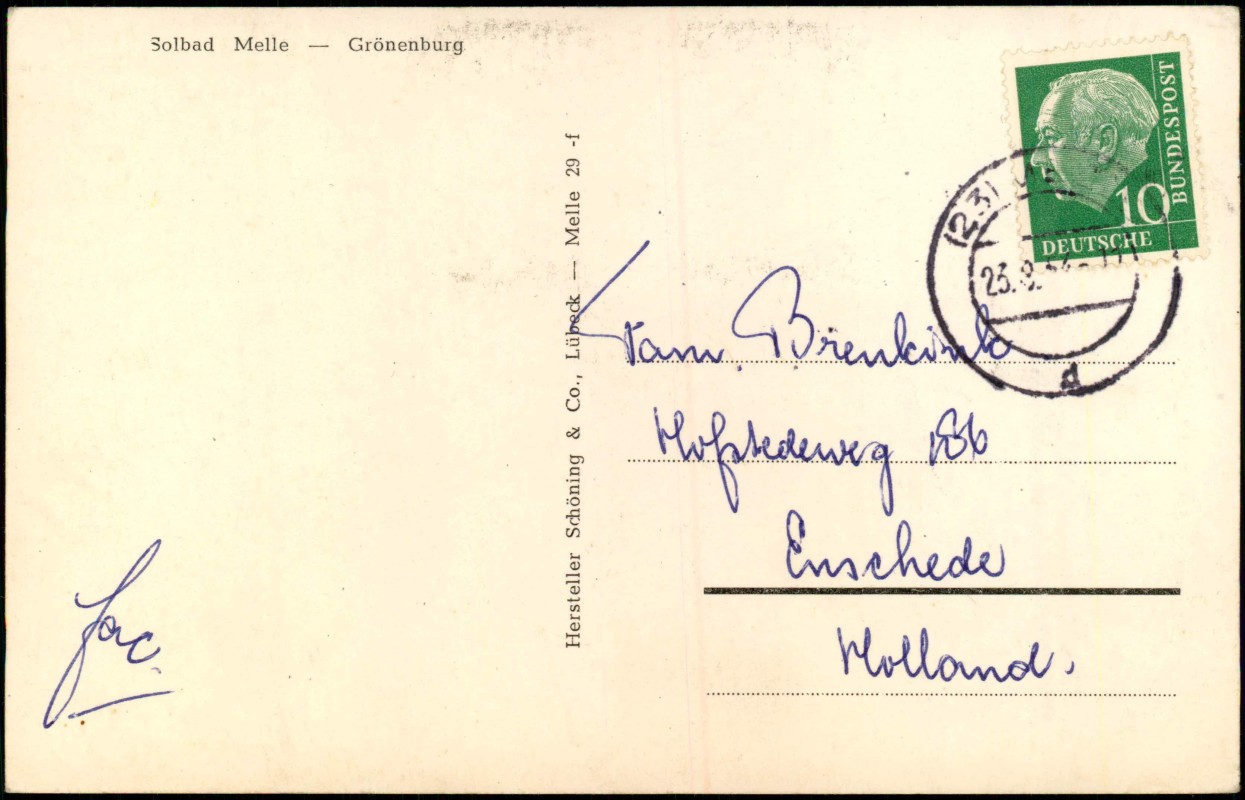 Solbad Melle — Grönenburg
Hersteller Schöning & Co., Lübeck — Melle 29 -f
BUNDESPOST
10
DEUTSCHE
(23)
23.8.
d
Fam. Brenkink
Hofstedeweg 186
Enschede
Holland.
Jac.